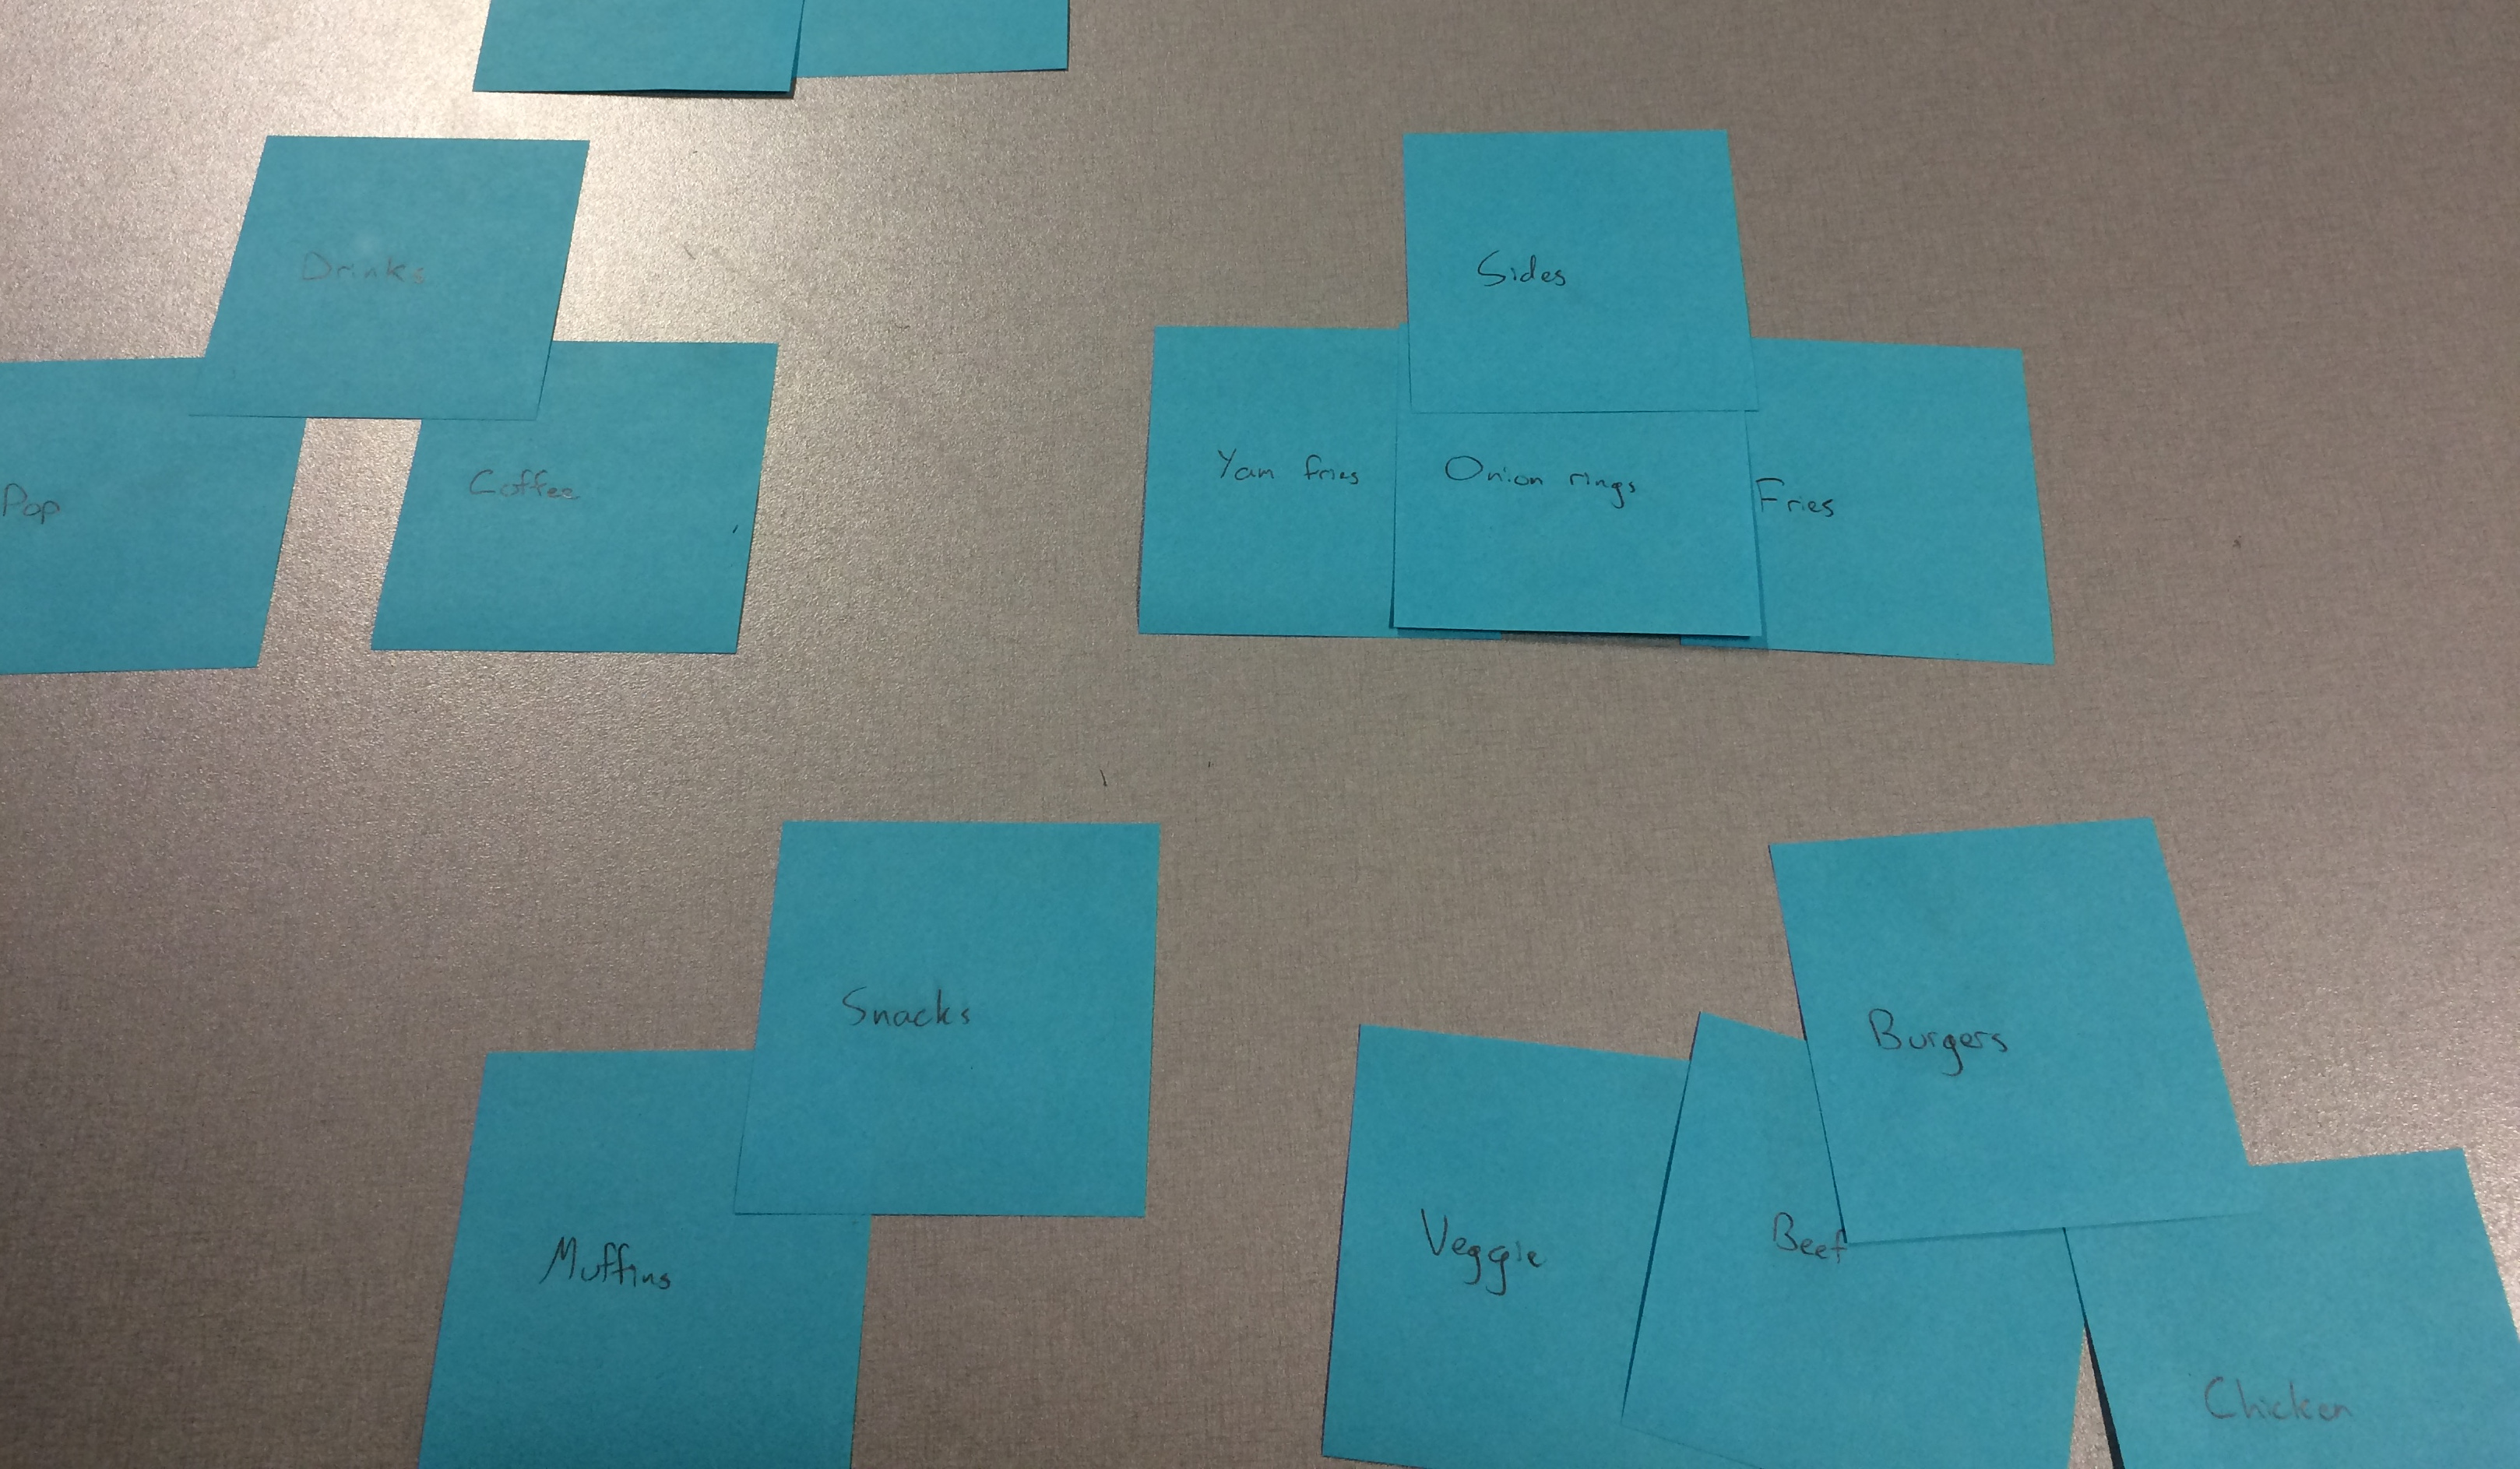 Drinks
Pop
Coffee
Sides
Yam fries
Onion rings
Fries
Snacks
Muffins
Burgers
Veggie
Beef
Chicken